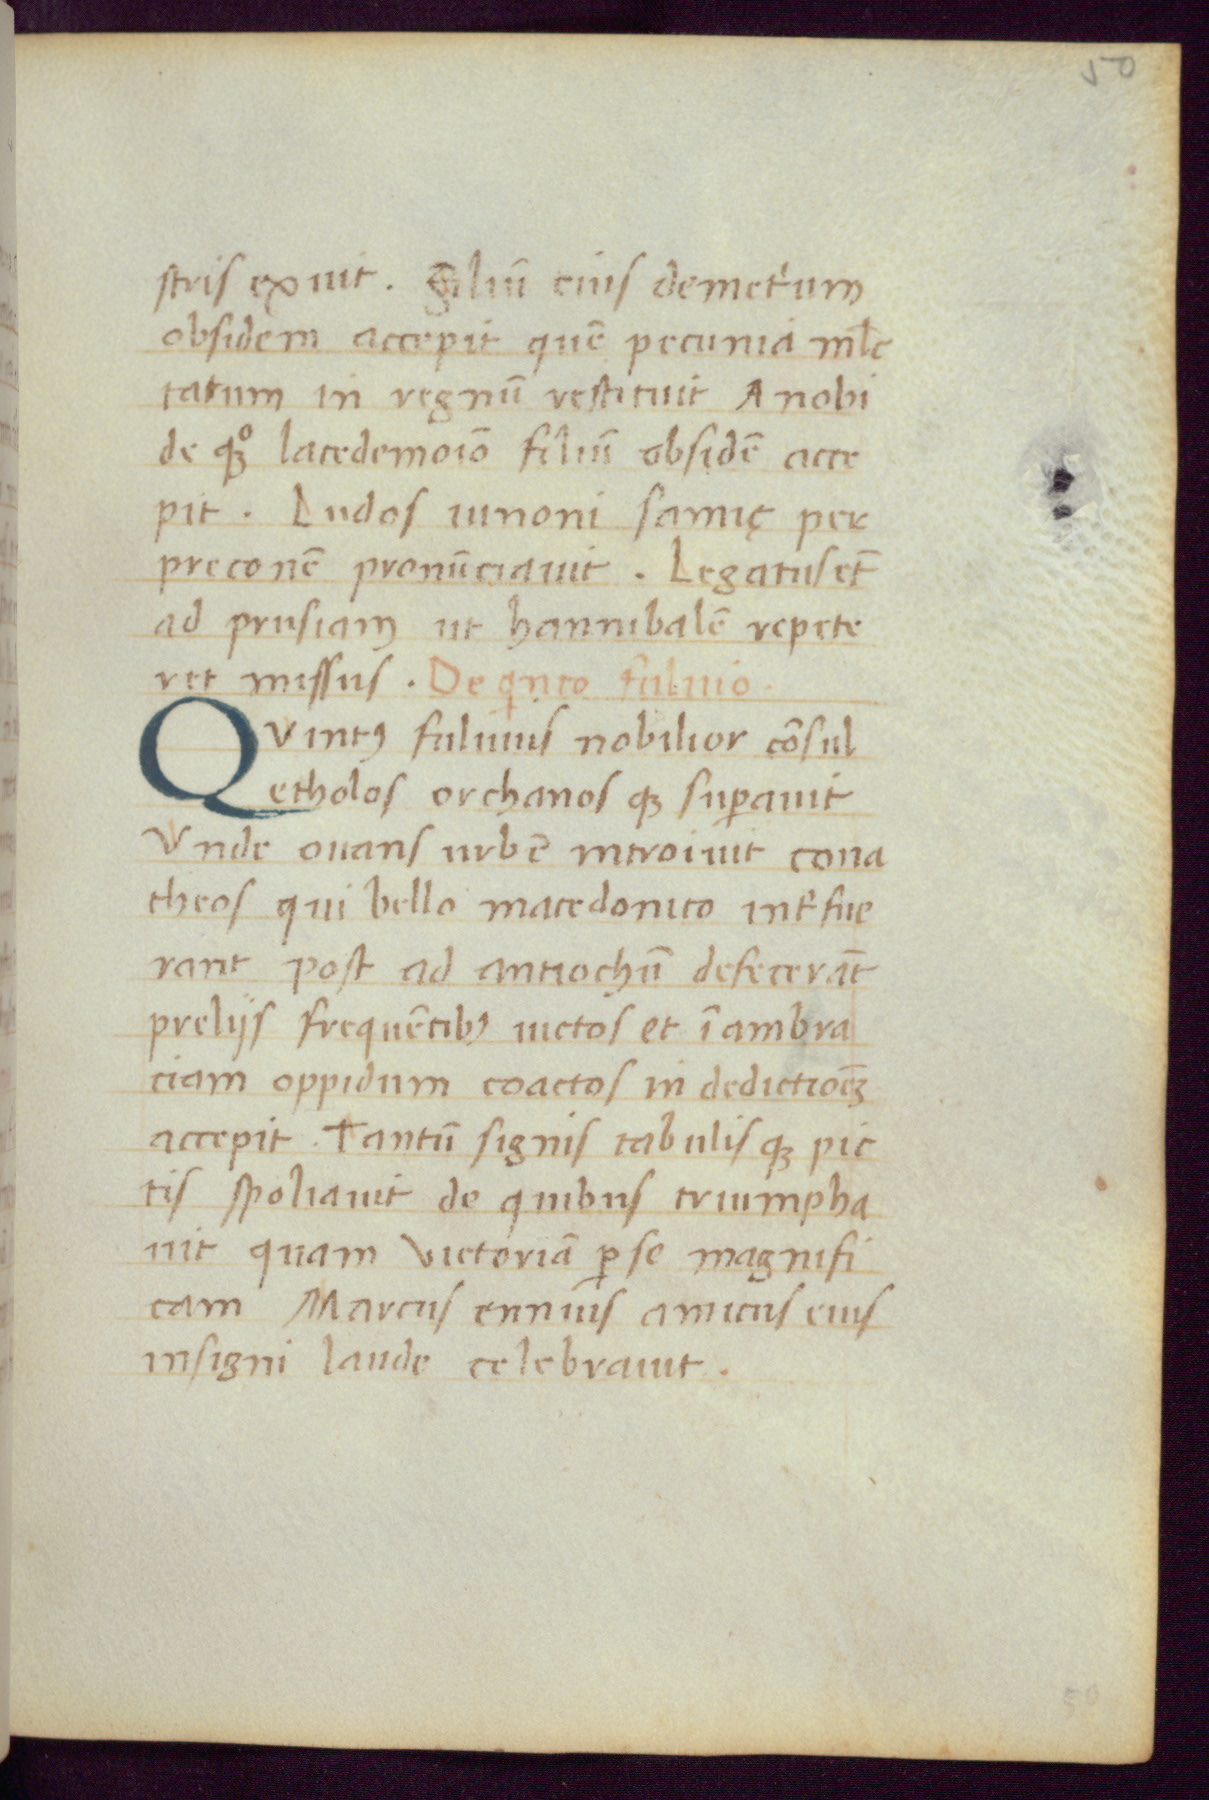 50
stris exuit. Filiū eius demet'ium
obsidem accepit quē pecunia mlc
tatum in regnū restituit A nobi
de qꝫo lacedemoiō filiū obsidē acce
pit. Ludos iunoni samię per
preconē pronūciauit. Legatus et̄
ad prusiam ut hannibalē repete
ret missus. De qnto fuluio.
Quintꝰ fuluius nobilior cōsul
etholos orchanos qꝫ suꝑauit
Vnde ouans urbē introiuit cona
theos qui bello macedonico int'fue
rant post ad antiochū defecerāt
prelijs frequētibꝰ uictos et ī ambra
ciam oppidum coactos in dedictioēꝫ
accepit. Tantū signis tabulis qꝫ pic
tis spoliauit de quibus triumpha
uit quam Victoriā ꝑ se magnifi
cam Marcus ennius amicus eius
insigni laude celebrauit.
50